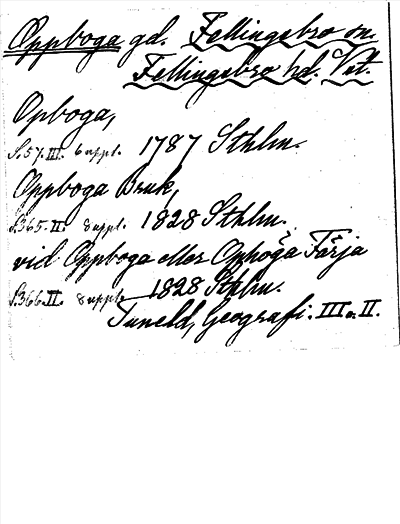 Oppboga gd. Fellingsbro sn.
Fellingsbro hd. Vstl.
Opboga,
S.57.III. 6 uppl. 1787 Sthlm.
Oppboga Bruk,
S.365.II. 8 uppl. 1828 Sthlm.
vid Oppboga eller Ophöga Färja
S.366.II. 8 uppl. 1828 Sthlm.
Tuneld, Geografi. III o. II.